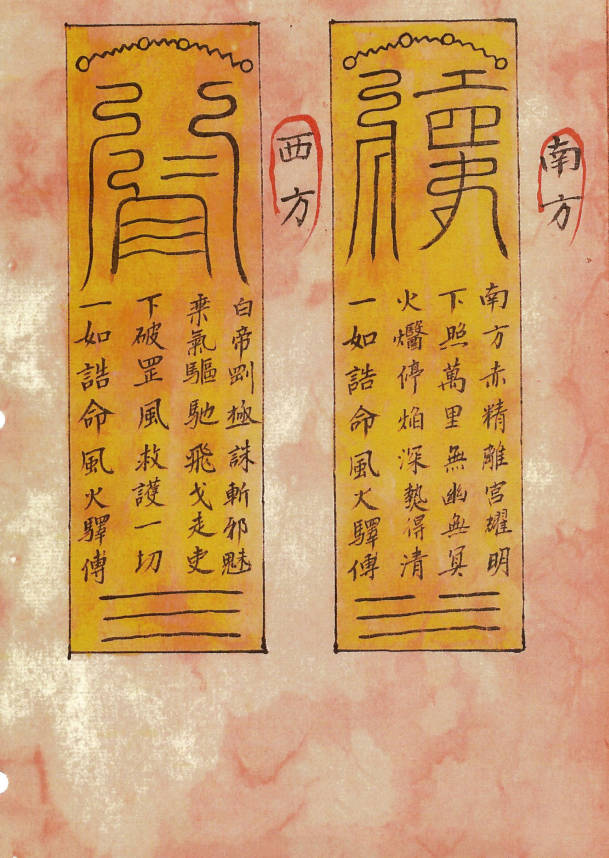 南方
南方赤精離宮耀明
下照萬里無幽無冥
火停焔深熱得清
一如誥命風火驛傳
西方
白帝剛極誅斬邪魅
乗氣驅馳飛戈走吏
下破罡風救護一切
一如誥命風火驛傳